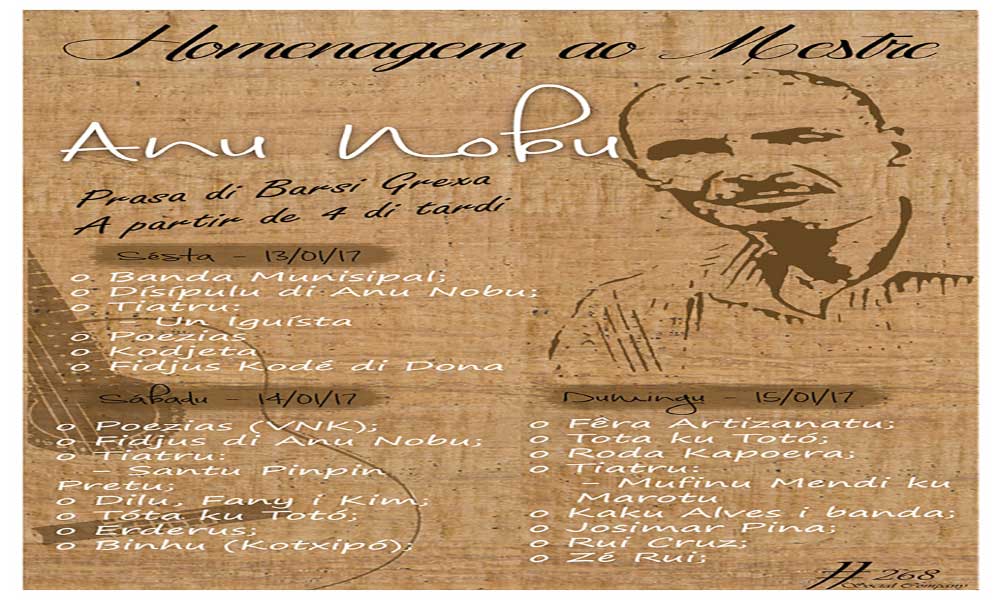 Homenagem ao Mestre
Anu Nobu
Prasa di Barsi Grexa
A pàrtir de 4 di tardi
Sésta - 13/01/17
o Banda Munisipal;
o Dísípulu di Anu Nobu;
o Tiatru:
- Un Iguísta
o Poezias
o Kodjeta
o Fidjus Kodé di Dona
Sábadu - 14/01/17
o Poezias (VNK);
o Fidjus di Anu Nobu;
o Tiatru:
- Santu Pinpin
Pretu;
o Dilu, Fany i Kim;
o Tóta ku Totó;
o Erderus;
o Binhu (Kotxipó);
Dumingu - 15/01/17
o Fêra Artizanatu;
o Tota ku Totó;
o Roda Kapoera;
o Tiatru:
- Mufinu Mendi ku
Marotu
o Kaku Alves i banda;
o Josimar Pina;
o Rui Cruz;
o Zé Rui;
H 268
Social Company